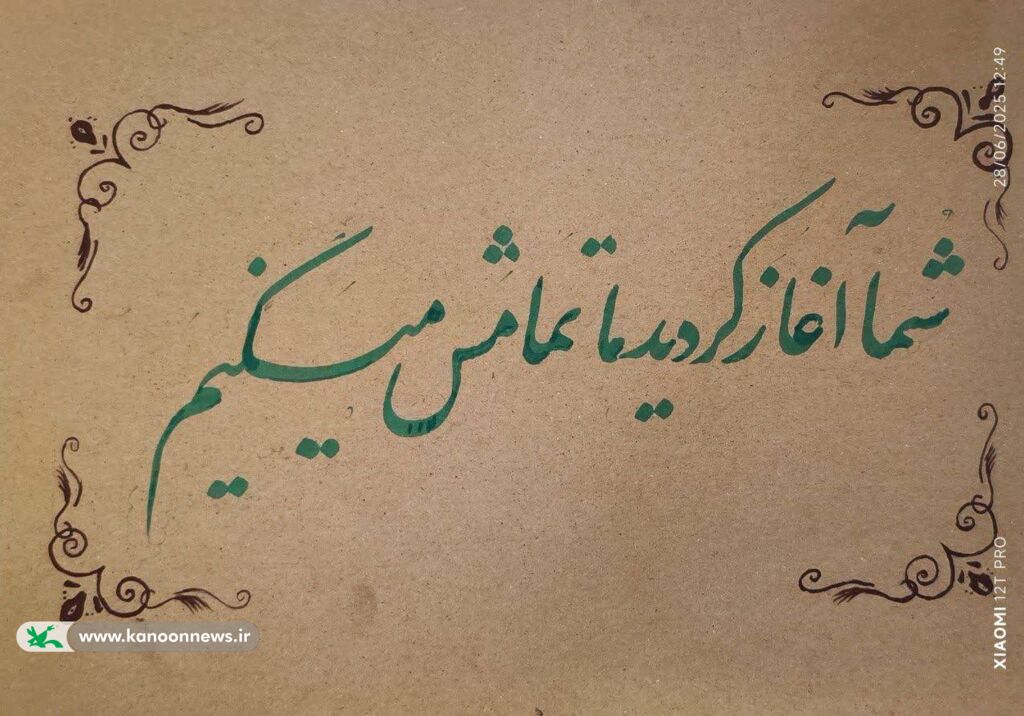 شما آغاز کردید ما تمامش میکنیم
www.kanoonnews.ir
28/06/2025 12:49
XIAOMI 12T PRO